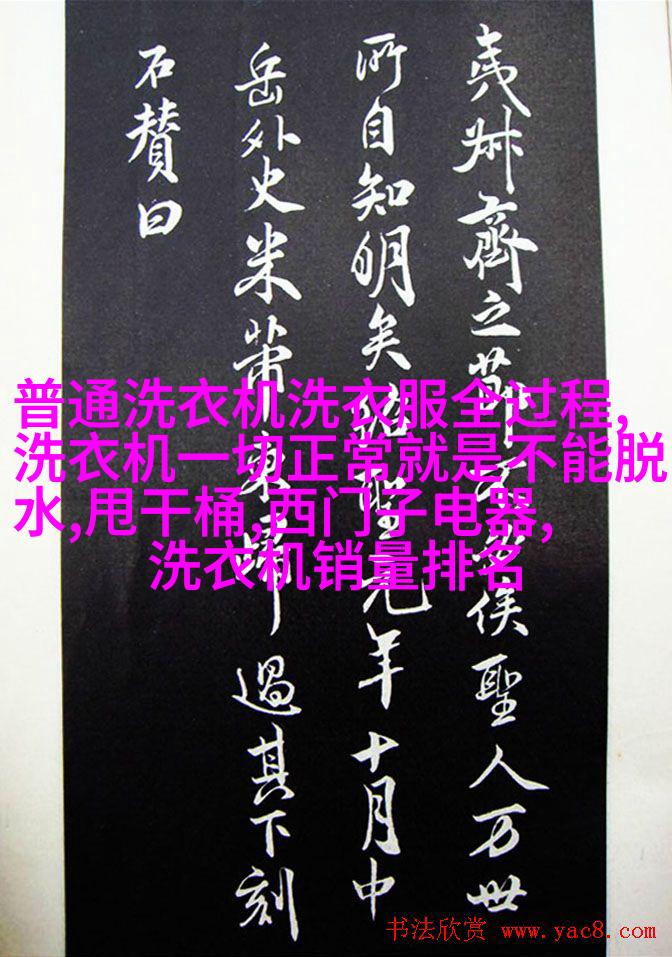 夷叔齊之節不必俟聖人万世
所自知明矣紹聖元年十月中
岳外史米芾東歸過其下刻
石賛曰
普通洗衣机洗衣服全过程,
洗衣机一切正常就是不能脱
水,甩干桶,西门子电器,
洗衣机销量排名
书法欣赏 www.yac8.com